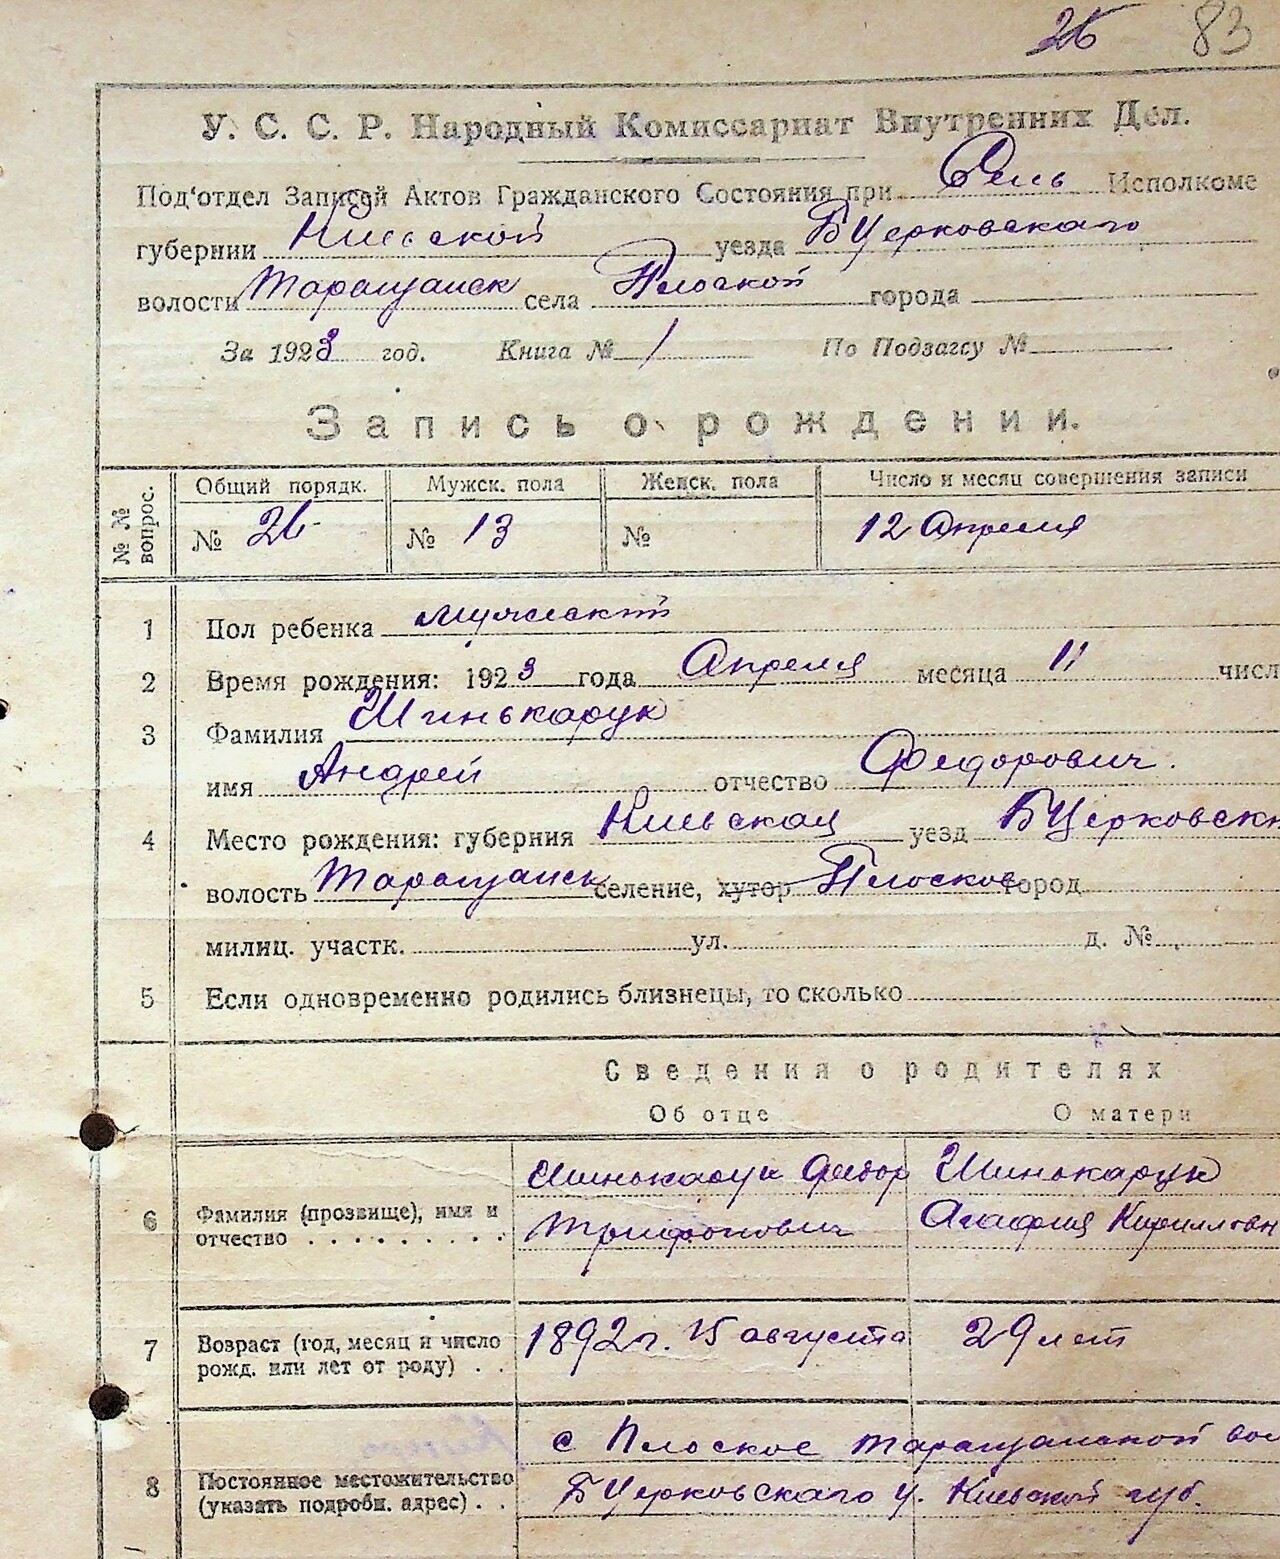 26 83
У. С. С. Р. Народный Комиссариат Внутренних Дел.
Под'отдел Записей Актов Гражданского Состояния при Сель Исполкоме
губернии Киевской уезда БЦерковскаго
волости Таращанск села Плоской города
За 1923 год. Книга № 1 По Подзагсу №
Запись о рождении.
№ № вопрос. Общий порядк. Мужск. пола Женск. пола Число и месяц совершения записи
№ 26 № 13 № 12 Апреля
1 Пол ребенка мужской
2 Время рождения: 1923 года Апреля месяца 11 числ
3 Фамилия Шинькарук
имя Андрей отчество Федорович.
4 Место рождения: губерния Киевская уезд БЦерковски
волость Таращанск селение, хутор Плоское город
милиц. участк. ул. д. №
5 Если одновременно родились близнецы, то сколько
Сведения о родителях
Об отце О матери
6 Фамилия (прозвище), имя и отчество . . . . . . . . . Шинькарук Федор Шинькарук
Трифонович Агафия Кирилловн
7 Возраст (год, месяц и число рожд. или лет от роду) . . 1892 г. 15 августа 29 лет
с Плоское Таращанской вол
8 Постоянное местожительство (указать подробн. адрес) . . БЦерковскаго у. Киевской губ.